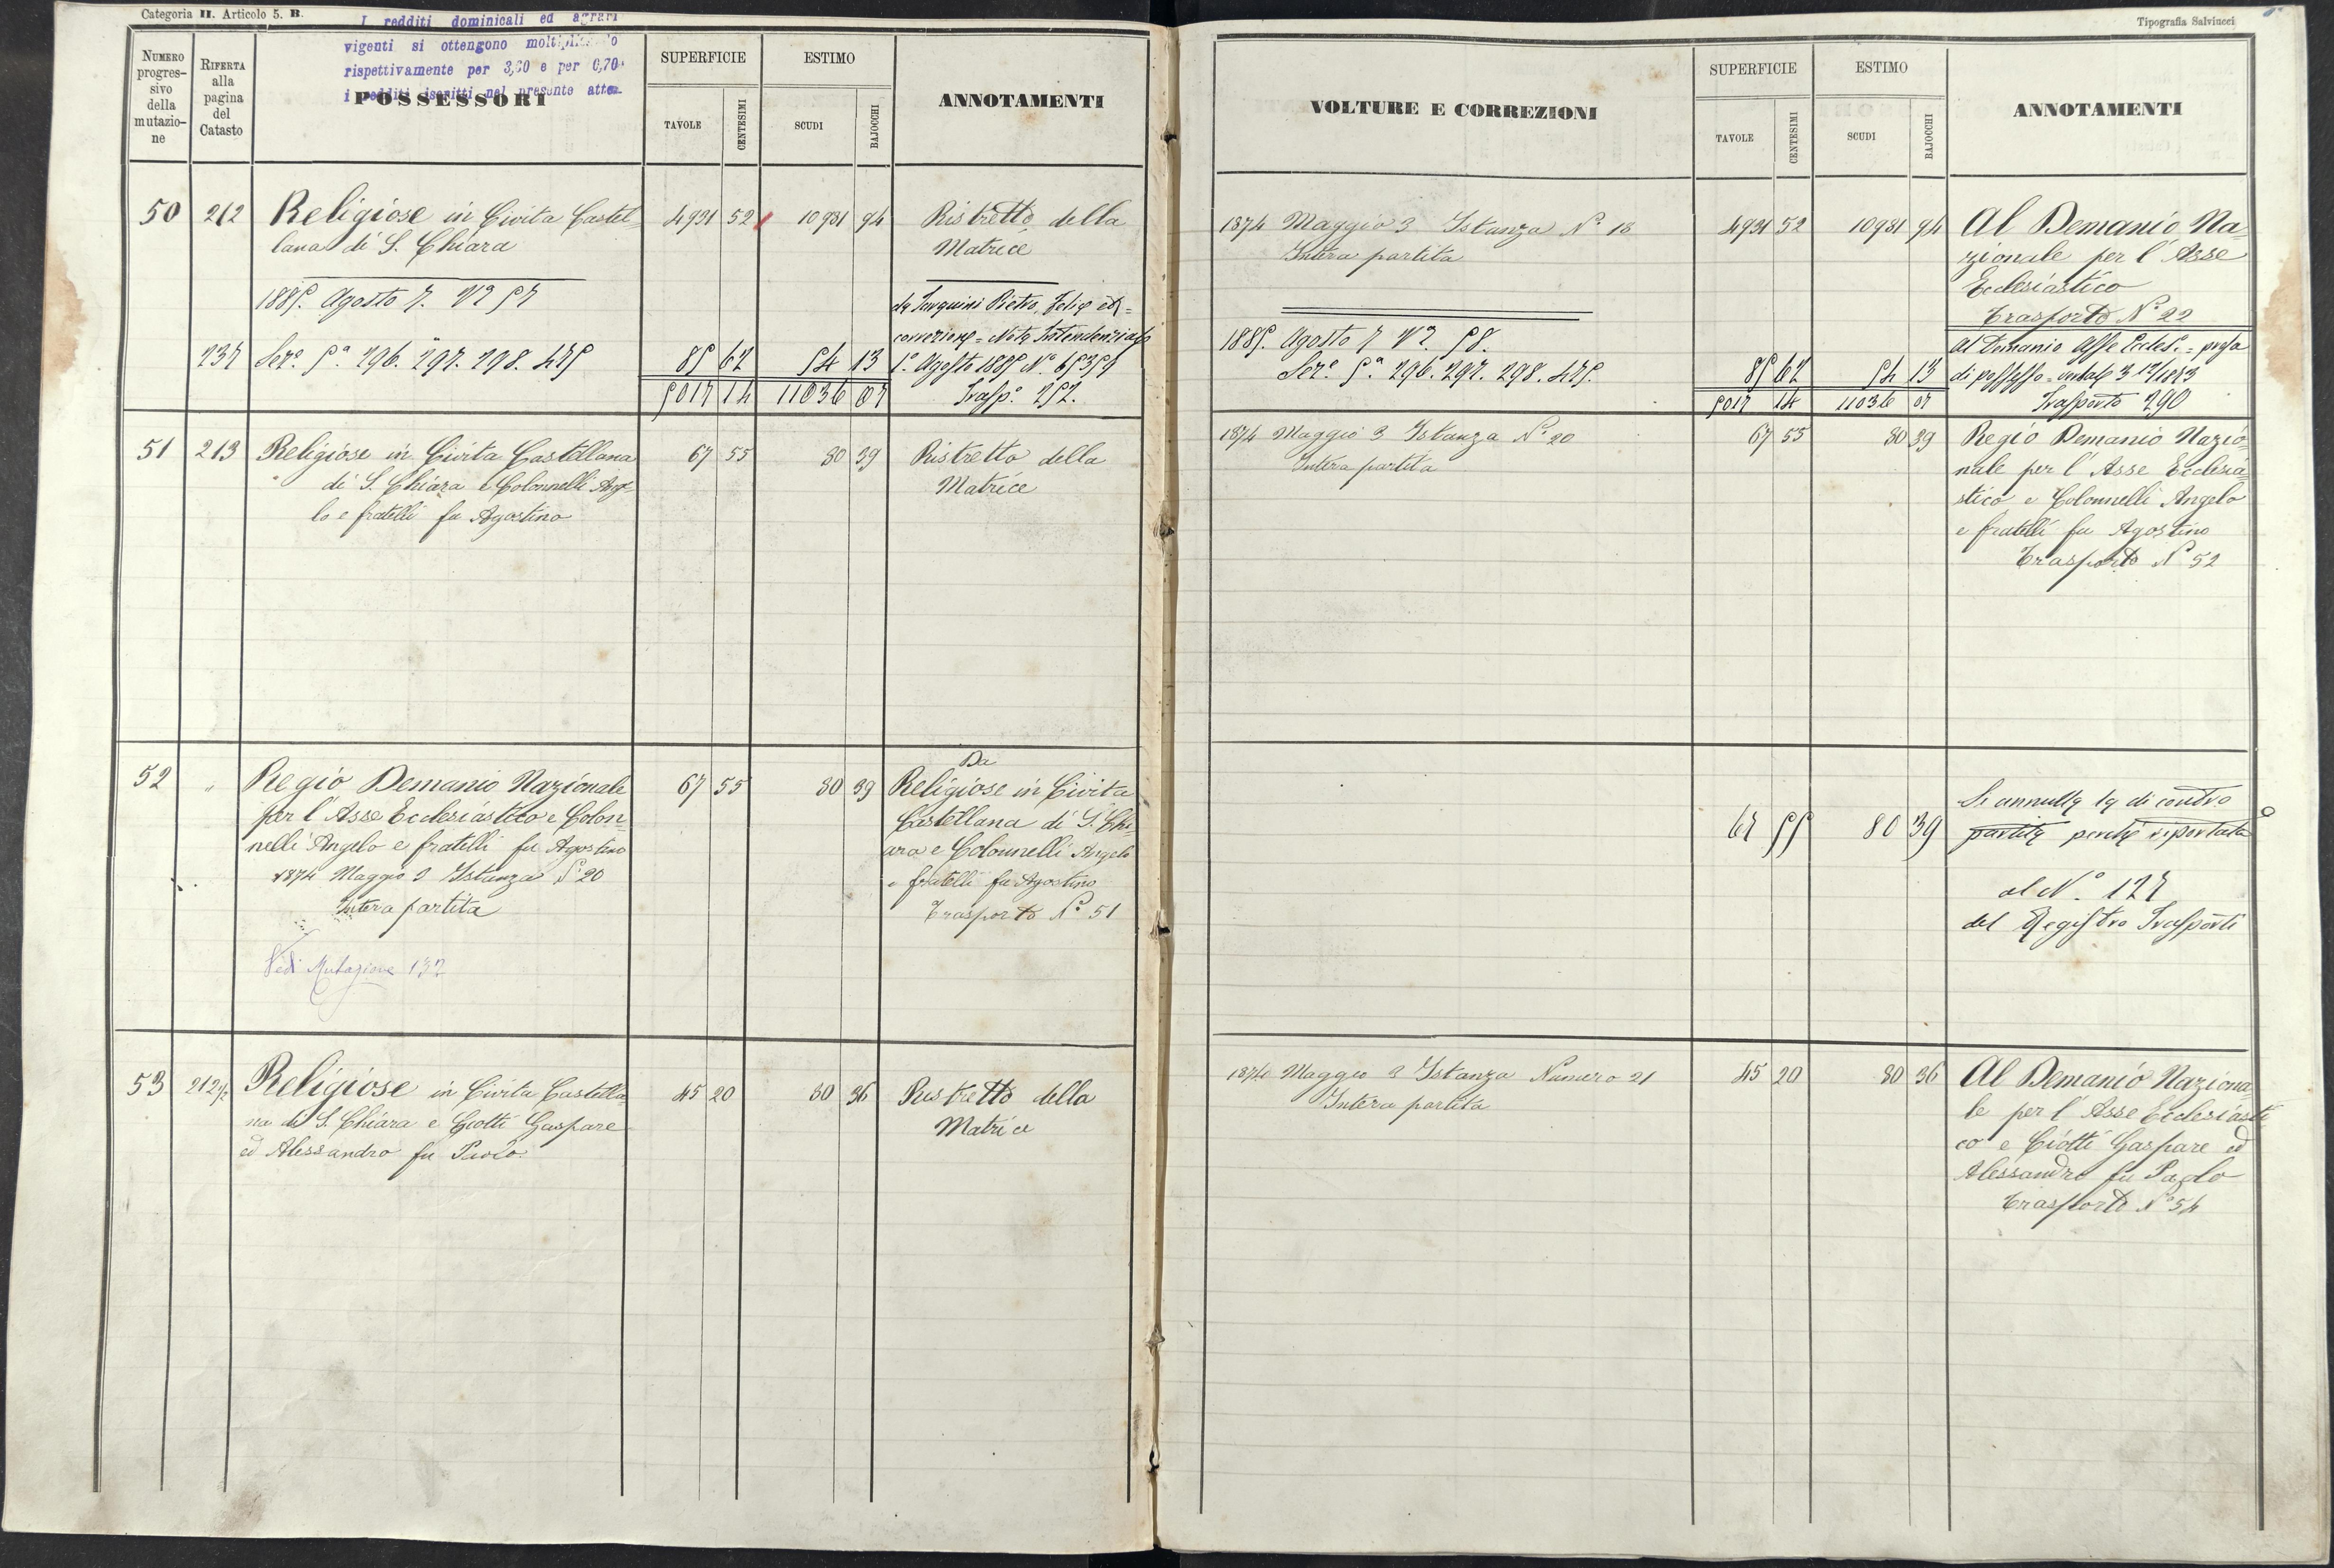 Categoria II. Articolo 5. B.
I redditi dominicali ed agrari
vigenti si ottengono moltiplicando
rispettivamente per 3,60 e per 0,70
i redditi iscritti nel presente atto
NUMERO progressivo della mutazione
RIFERTA alla pagina del Catasto
POSSESSORI
SUPERFICIE
TAVOLE
CENTESIMI
ESTIMO
SCUDI
BAJOCCHI
ANNOTAMENTI
50 212 Religiose in Civita Castel= 4931 52 10981 94 Ristretto della
lana di S. Chiara Matrice
1885. Agosto 7. N° 57 da Pietro, Felice
correzione = Nota Intendenziale
237 Sez.e 5a 296. 297. 298. 475 85 62 54 13 1° Agosto 1885 N° 65359
5017 14 11036 07 Trasp.o 252.
51 213 Religiose in Civita Castellana 67 55 80 39 Ristretto della
di S. Chiara e Colonnelli Ange= Matrice
lo e fratelli fu Agostino
Da
52 " Regio Demanio Nazionale 67 55 80 39 Religiose in Civita
per l'Asse Ecclesiastico e Colon= Castellana di S. Chi=
nelli Angelo e fratelli fu Agostino ara e Colonnelli Angelo
1874 Maggio 3 Istanza N° 20 e fratelli fu Agostino
Intera partita Trasporto N° 51
Vedi Mutazione 132
53 212 1/2 Religiose in Civita Castella= 45 20 80 36 Ristretto della
na di S. Chiara e Ciotti Gaspare Matrice
ed Alessandro fu Paolo
Tipografia Salviucci
VOLTURE E CORREZIONI
SUPERFICIE
TAVOLE
CENTESIMI
ESTIMO
SCUDI
BAJOCCHI
ANNOTAMENTI
1874 Maggio 3 Istanza N° 18 4931 52 10981 94 Al Demanio Na=
Intera partita zionale per l'Asse
Ecclesiastico
Trasporto N° 22
1885. Agosto 7 N° 58. al Demanio Asse Eccles.o = presa
Sez.e 5a 296. 297. 298. 475. 85 62 54 13 di possesso = verbale 3 12/1873
5017 14 11036 07 Trasporto 290
1874 Maggio 3 Istanza N° 20 67 55 80 39 Regio Demanio Nazio=
Intera partita nale per l'Asse Ecclesia=
stico e Colonnelli Angelo
e fratelli fu Agostino
Trasporto N° 52
Si annulla la di contro
67 55 80 39 partita perchè riportata
al N° 127
del Registro Trasporti
1874 Maggio 3 Istanza Numero 21 45 20 80 36 Al Demanio Naziona=
Intera partita le per l'Asse Ecclesiasti
co e Ciotti Gaspare ed
Alessandro fu Paolo
Trasporto N° 54